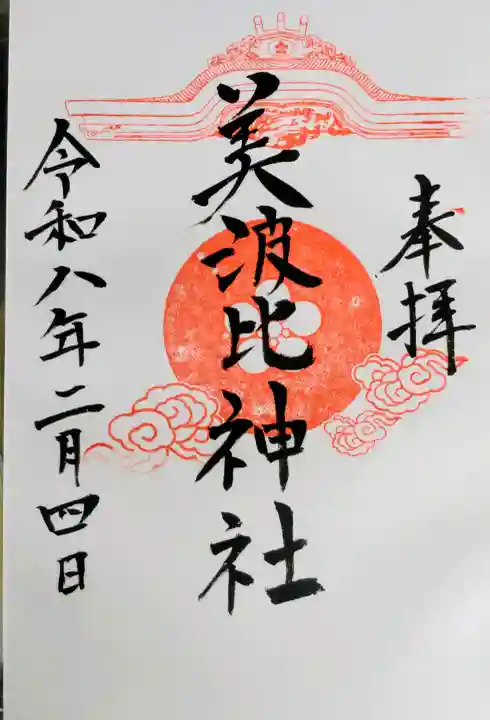 奉拝
美波比神社
令和八年二月四日